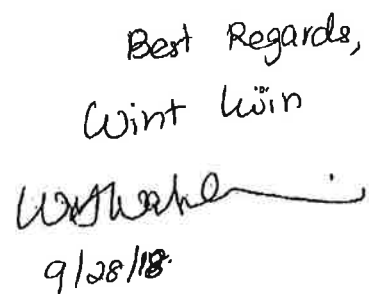 Best Regards,
Wint Win
9/28/18